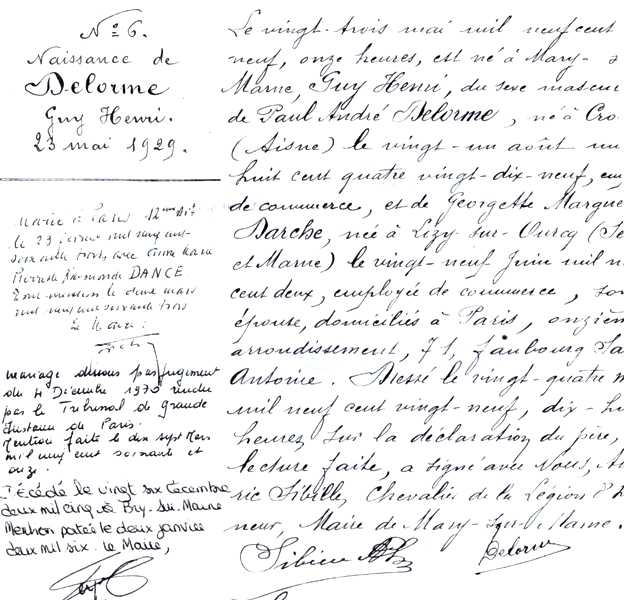 N° 6.
Naissance de
Delorme
Guy Henri.
23 mai 1929.
Marié à Paris 12ème Art
le 23 janvier mil neuf cent
soixante trois, avec Anne Marie
Pierrette Raymonde DANCE
mention le deux mars
mil neuf cent soixante trois
Le Maire :
mariage dissous par jugement
du 4 Décembre 1970 rendu
par le Tribunal de Grande
Instance de Paris.
Mention faite le dix sept Mars
mil neuf cent soixante et
onze.
Décédé le vingt six décembre
deux mil cinq à Bry-sur-Marne
Mention portée le deux janvier
deux mil six. le Maire,
Le vingt-trois mai mil neuf cent
neuf, onze heures, est né à Mary-s
Marne, Guy Henri, du sexe mascu
de Paul André Delorme, né à Cro
(Aisne) le vingt-un août mil
huit cent quatre vingt-dix-neuf, em
de commerce, et de Georgette Margue
Darche, née à Lizy-sur-Ourcq (Se
et Marne) le vingt-neuf Juin mil n
cent deux, employée de commerce, son
épouse, domiciliés à Paris, onzièm
arrondissement, 71, faubourg Sa
Antoine. Dressé le vingt-quatre m
mil neuf cent vingt-neuf, dix-hu
heures, sur la déclaration du père,
lecture faite, a signé avec Nous, Al
ric Sibille, Chevalier de la Légion d'h
neur, Maire de Mary-sur-Marne.
Sibille
Delorme